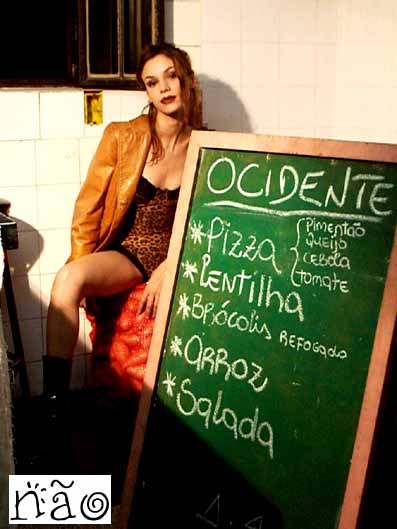 OCIDENTE
* Pizza { Pimentão
Queijo
CEBOLA
tomate
* Lentilha
* Brócolis REFOGADO
* ARROZ
* Salada
não